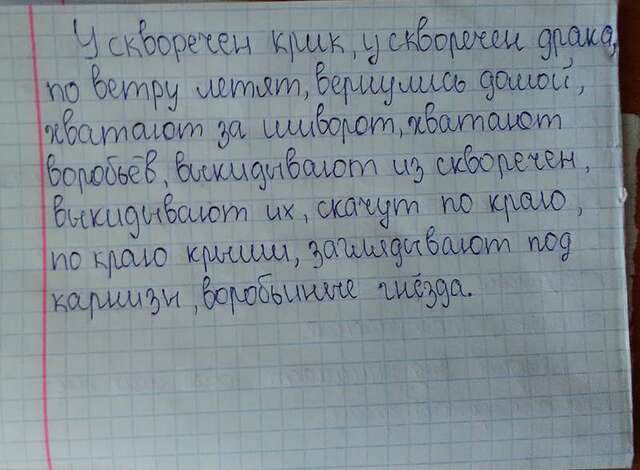 У скворечен крик, у скворечен драка,
по ветру летят, вернулись домой,
хватают за шиворот, хватают
воробьёв, выкидывают из скворечен,
выкидывают их, скачут по краю,
по краю крыши, заглядывают под
карнизы, воробьиные гнёзда.